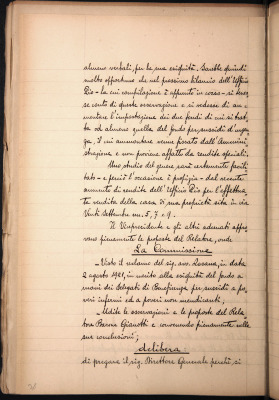 almeno verbali, per la sua esiguità. Sarebbe quindi
molto opportuno che nel prossimo bilancio dell'Ufficio
Pio - la cui compilazione è appunto in corso - si tenes
se conto di queste osservazioni e si vedesse di au
mentare l'impostazione dei due fondi di cui si trat
ta od almeno quella del fondo per sussidi d'urgen
za, il cui ammontare venne fissato dall'Ammini
strazione e non proviene affatto da rendite speciali.
Uno studio del genere sarà certamente facili
tato - e perciò l'occasione è propizia - dal recente
aumento di rendite dell'Ufficio Pio per l'effettua
ta vendita della casa di sua proprietà sita in via
Venti Settembre nn. 5, 7 e 9.
Il Vicepresidente e gli altri adunati appro
vano pienamente le proposte del Relatore, onde
La Commissione
- Visto il reclamo del sig. avv. Losana, in data
2 agosto 1921, in merito alla esiguità del fondo a
mani dei delegati di Beneficenza per sussidi a po
veri infermi ed a poveri non mendicanti;
- Udite le osservazioni e le proposte del Rela
tore Barone Gianotti e convenendo pienamente nelle
sue conclusioni;
delibera:
di pregare il sig. Direttore Generale perchè, si